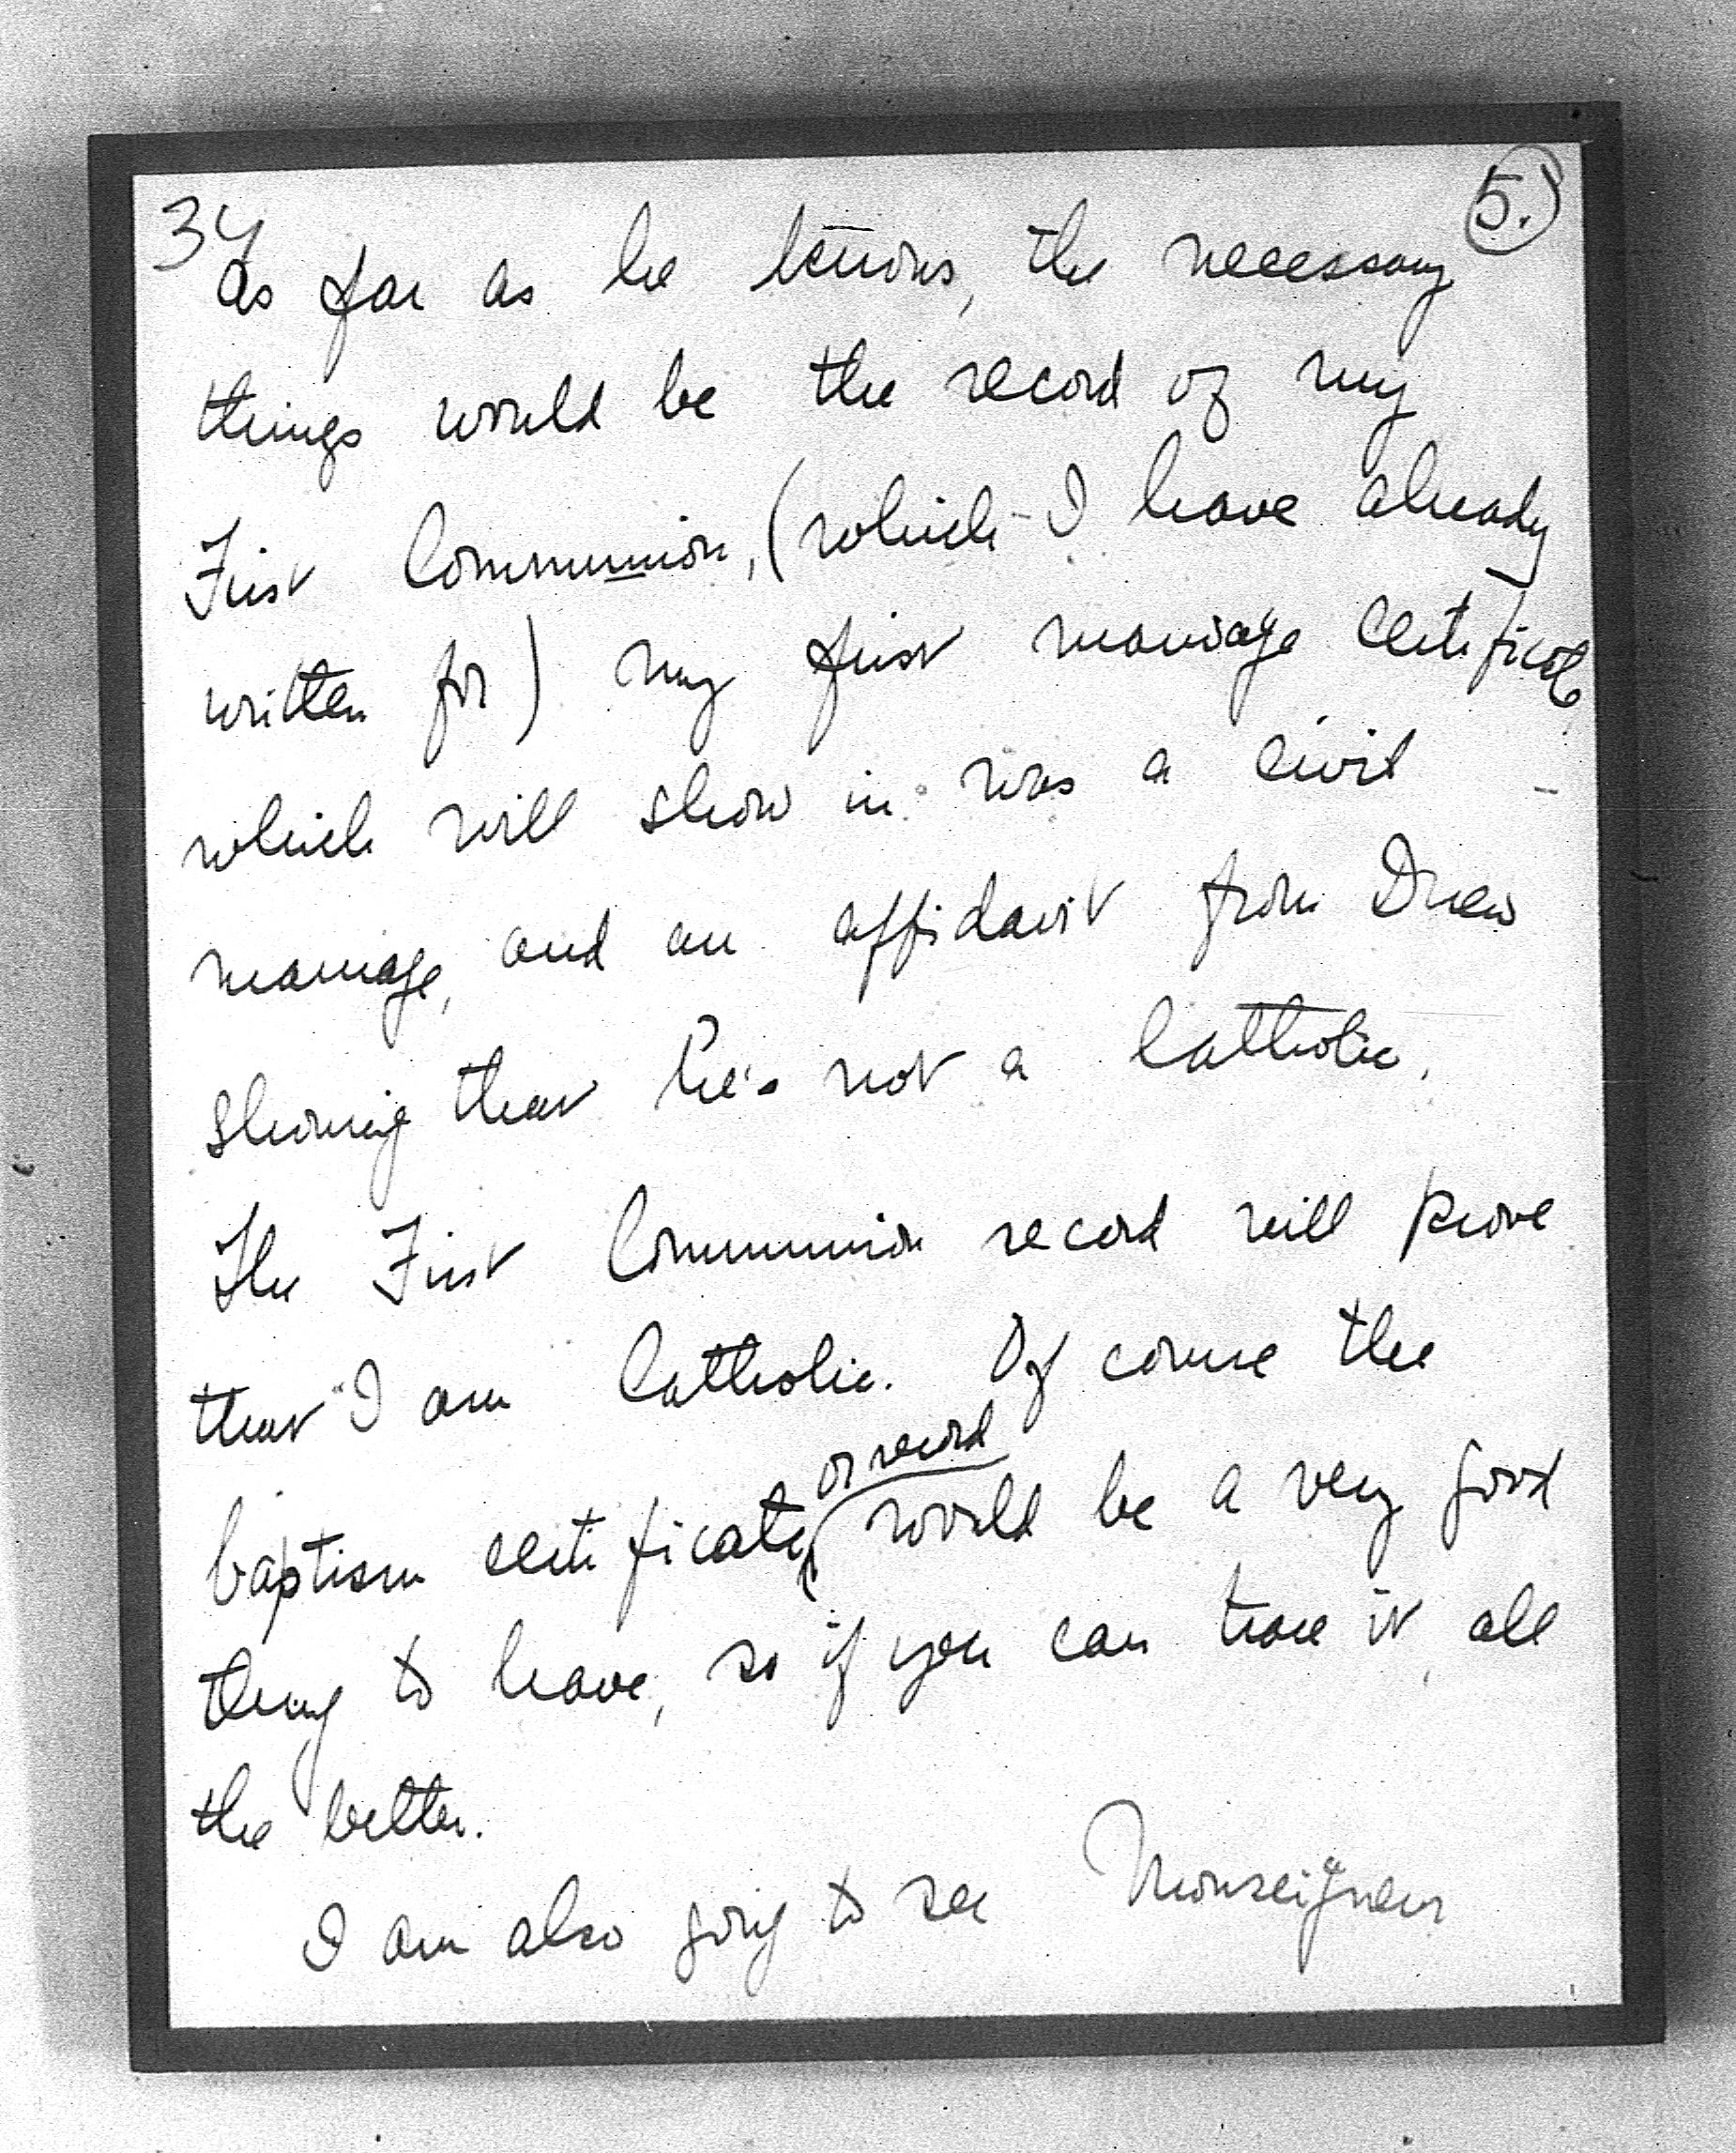 34 5.)
As far as he knows, the necessary
things would be the record of my
First Communion, (which I have already
written for) my first marriage certificate,
which will show in was a civil
marriage, and an affidavit from Drew
showing that he's not a Catholic.
The First Communion record will prove
that I am Catholic. Of course the
or record
baptism certificate would be a very good
thing to have, so if you can trace it, all
the better.
I am also going to see Monseigneur